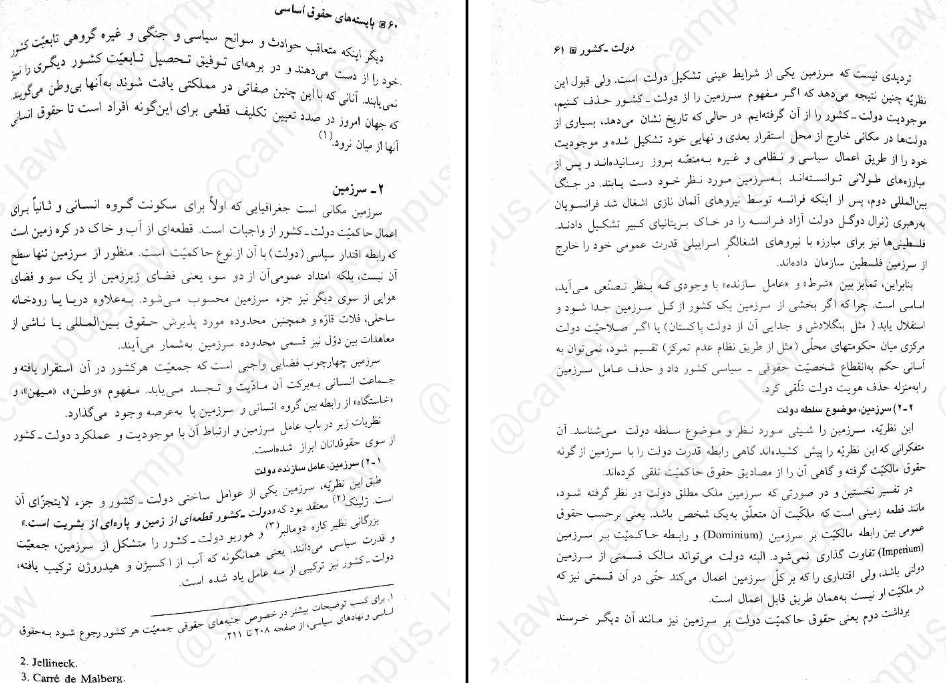 ۶۰ ▣ بایسته‌های حقوق اساسی
دیگر اینکه متعاقب حوادث و سوانح سیاسی و جنگی و غیره گروهی تابعیّت کشور
خود را از دست می‌دهند و در برهه‌ای توفیق تحصیل تابعیّت کشور دیگری را نیز
نمی‌یابند. آنانی که با این چنین صفاتی در مملکتی یافت شوند به‌آنها بی‌وطن می‌گویند
که جهان امروز در صدد تعیین تکلیف قطعی برای این‌گونه افراد است تا حقوق انسانی
آنها از میان نرود.(۱)
۲ـ سرزمین
سرزمین مکانی است جغرافیایی که اولاً برای سکونت گروه انسانی و ثانیاً برای
اعمال حاکمیّت دولت ـ کشور از واجبات است. قطعه‌ای از آب و خاک در کره زمین است
که رابطه اقتدار سیاسی (دولت) با آن از نوع حاکمیّت است. منظور از سرزمین تنها سطح
آن نیست، بلکه امتداد عمومی آن از دو سو، یعنی فضای زیرزمین از یک سو و فضای
هوایی از سوی دیگر نیز جزء سرزمین محسوب می‌شود. به‌علاوه دریا یا رودخانه
ساحلی، فلات قارّه و همچنین محدوده مورد پذیرش حقوق بین‌المللی یا ناشی از
معاهدات بین دوّل نیز قسمی محدوده سرزمین به‌شمار می‌آیند.
سرزمین چهارچوب فضایی واجبی است که جمعیّت هرکشور در آن استقرار یافته و
جماعت انسانی به‌برکت آن مادّیت و تجسد می‌یابد. مفهوم «وطن»، «میهن»، و
«خاستگاه» از رابطه بین گروه انسانی و سرزمین پا به‌عرصه وجود می‌گذارد.
نظریات زیر در باب عامل سرزمین و ارتباط آن با موجودیت و عملکرد دولت ـ کشور
از سوی حقوقدانان ابراز شده‌است.
۱ـ۲) سرزمین، عامل سازنده دولت
طبق این نظریّه، سرزمین یکی از عوامل ساختی دولت ـ کشور و جزء لایتجزّای آن
است. ژلینک(۲) معتقد بود که «دولت ـ کشور قطعه‌ای از زمین و پاره‌ای از بشریت است.»
بزرگانی نظیر کاره دومالبر(۳) و هوریو دولت ـ کشور را متشکل از سرزمین، جمعیّت
و قدرت سیاسی می‌دانند. یعنی همانگونه که آب از اکسیژن و هیدروژن ترکیب یافته،
دولت ـ کشور نیز ترکیبی از سه عامل یاد شده است.
۱. برای کسب توضیحات بیشتر در خصوص جنبه‌های حقوقی جمعیّت هر کشور رجوع شود به‌حقوق
اساسی و نهادهای سیاسی، از صفحه ۲۰۸ تا ۲۱۱.
2. Jellineck.
3. Carré de Malberg.
دولت ـ کشور ▣ ۶۱
تردیدی نیست که سرزمین یکی از شرایط عینی تشکیل دولت است. ولی قبول این
نظریّه چنین نتیجه می‌دهد که اگر مفهوم سرزمین را از دولت ـ کشور حذف کنیم،
موجودیت دولت ـ کشور را از آن گرفته‌ایم. در حالی که تاریخ نشان می‌دهد، بسیاری از
دولت‌ها در مکانی خارج از محل استقرار بعدی و نهایی خود تشکیل شده و موجودیت
خود را از طریق اعمال سیاسی و نظامی و غیره به‌منصّه بروز رسانیده‌اند و پس از
مبارزه‌های طولانی توانسته‌اند به‌سرزمین مورد نظر خود دست یابند. در جنگ
بین‌المللی دوم، پس از اینکه فرانسه توسط نیروهای آلمان نازی اشغال شد فرانسویان
به‌رهبری ژنرال دوگل دولت آزاد فرانسه را در خاک بریتانیای کبیر تشکیل دادند.
فلسطینی‌ها نیز برای مبارزه با نیروهای اشغالگر اسراییلی قدرت عمومی خود را خارج
از سرزمین فلسطین سازمان داده‌اند.
بنابراین، تمایز بین «شرط» و «عامل سازنده» با وجودی که بنظر تصنّعی می‌آید،
اساسی است. چرا که اگر بخشی از سرزمین یک کشور از کل سرزمین جدا شود و
استقلال یابد ( مثل بنگلادش و جدایی آن از دولت پاکستان) یا اگر صلاحیّت دولت
مرکزی میان حکومتهای محلّی (مثل از طریق نظام عدم تمرکز) تقسیم شود، نمی‌توان به
آسانی حکم به‌انقطاع شخصیّت حقوقی ـ سیاسی کشور داد و حذف عامل سرزمین
را به‌منزله حذف هویت دولت تلّقی کرد.
۲ـ۲) سرزمین، موضوع سلطه دولت
این نظریّه، سرزمین را شیئی مورد نظر و موضوع سلطه دولت می‌شناسد. آن
متفکرانی که این نظریّه را پیش کشیده‌اند گاهی رابطه قدرت دولت را با سرزمین از گونه
حقوق مالکیّت گرفته و گاهی آن را از مصادیق حقوق حاکمیّت تلقی کرده‌اند.
در تفسیر نخستین و در صورتی که سرزمین ملک مطلق دولت در نظر گرفته شود،
مانند قطعه زمینی است که ملکیّت آن متعلّق به‌یک شخص باشد. یعنی برحسب حقوق
عمومی بین رابطه مالکیّت بر سرزمین (Dominium) و رابطه حاکمیّت بر سرزمین
(Imperium) تفاوت گذاری نمی‌شود. البته دولت می‌تواند مالک قسمتی از سرزمین
دولتی باشد، ولی اقتداری را که بر کلّ سرزمین اعمال می‌کند حتّی در آن قسمتی نیز که
در ملکیّت او نیست به‌همان طریق قابل اعمال است.
برداشت دوم یعنی حقوق حاکمیّت دولت بر سرزمین نیز مانند آن دیگر خرسند
@campus_law